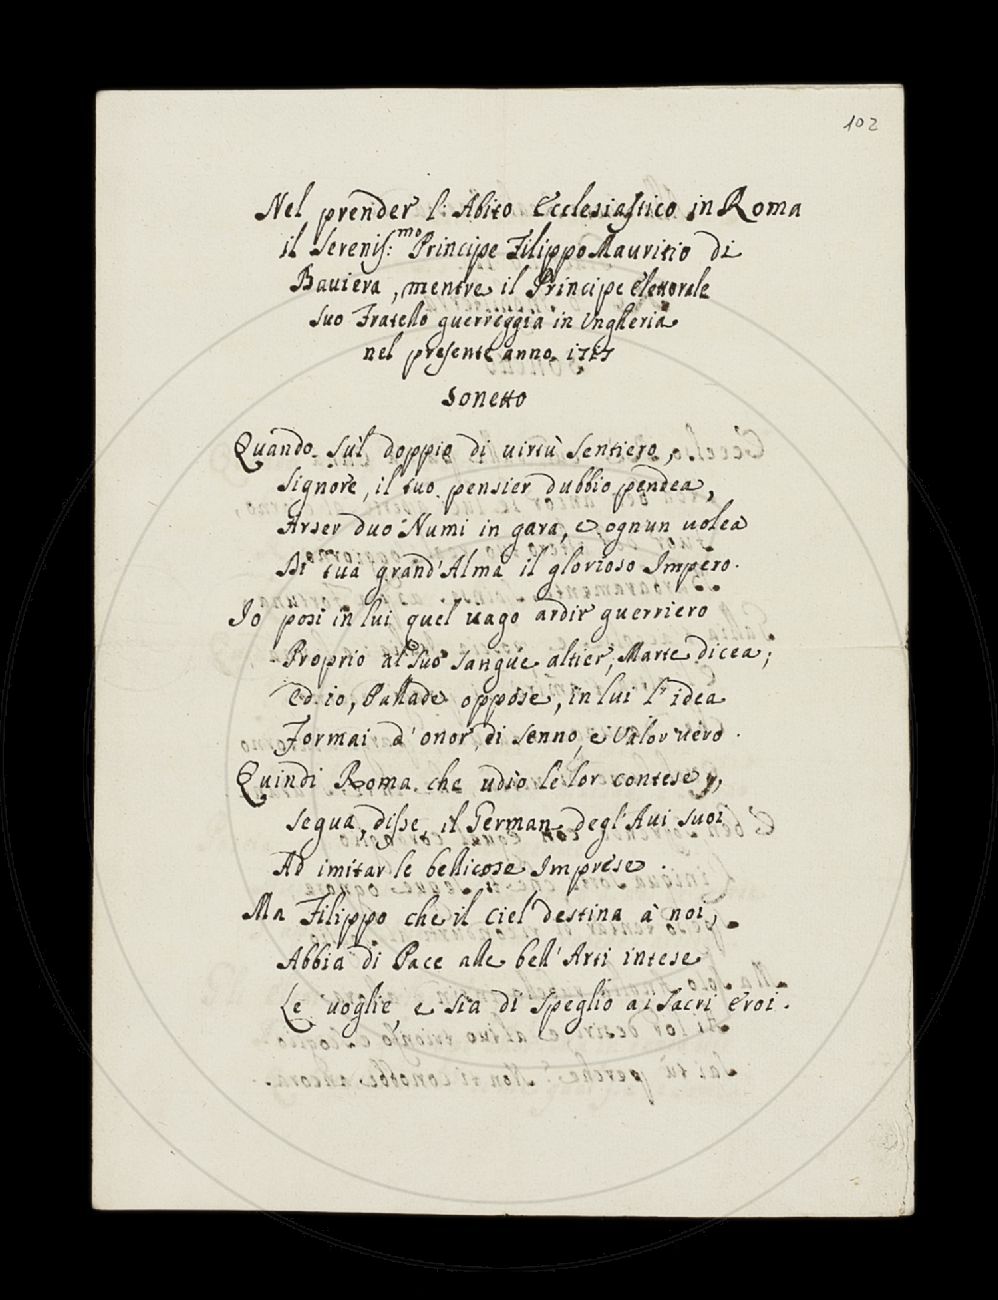 102
Nel prender l'Abito Ecclesiastico in Roma
il Sereniss:mo Principe Filippo Mauritio di
Baviera, mentre il Principe Elettorale
suo Fratello guerreggia in Ungheria
nel presente anno 1717
Sonetto
Quando sul doppio di virtù sentiero,
Signore, il tuo pensier dubbio pendea,
Arser duo Numi in gara, e ognun volea
Di tua grand'Alma il glorioso Impero.
Io posi in lui quel vago ardir guerriero
Proprio al suo sangue altier, Marte dicea;
Ed io, Pallade oppose, in lui l'idea
Formai d'onor di senno, e valor vero.
Quindi Roma che udìo le lor contese,
Segua, disse, il German degl'Avi suoi
Ad imitar le bellicose Imprese.
Ma Filippo che il Ciel destina à noi,
Abbia di Pace alle bell'Arti intese
Le voglie, e sia di speglio ai Sacri Eroi.